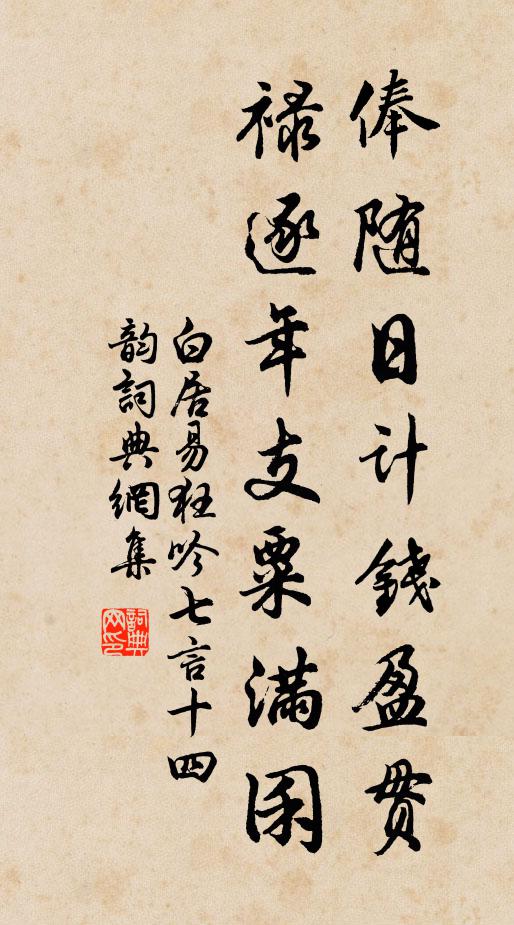 俸随日计錢盈贯
禄逐年支粟满囷
白居易狂吟七言十四
韵詞典網集
詞典網印